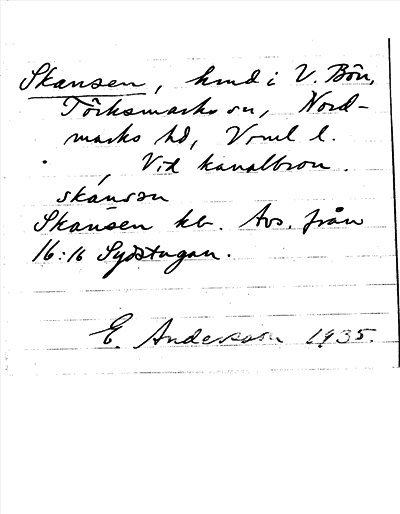 Skansen, hmd i V. Bön,
Törksmarks sn, Nord-
marks hd, Vrml l.
Vid kanalbron.
skánsən
Skansen kb. Avs. från
16:16 Sydstugan.
E. Andersson 1935.